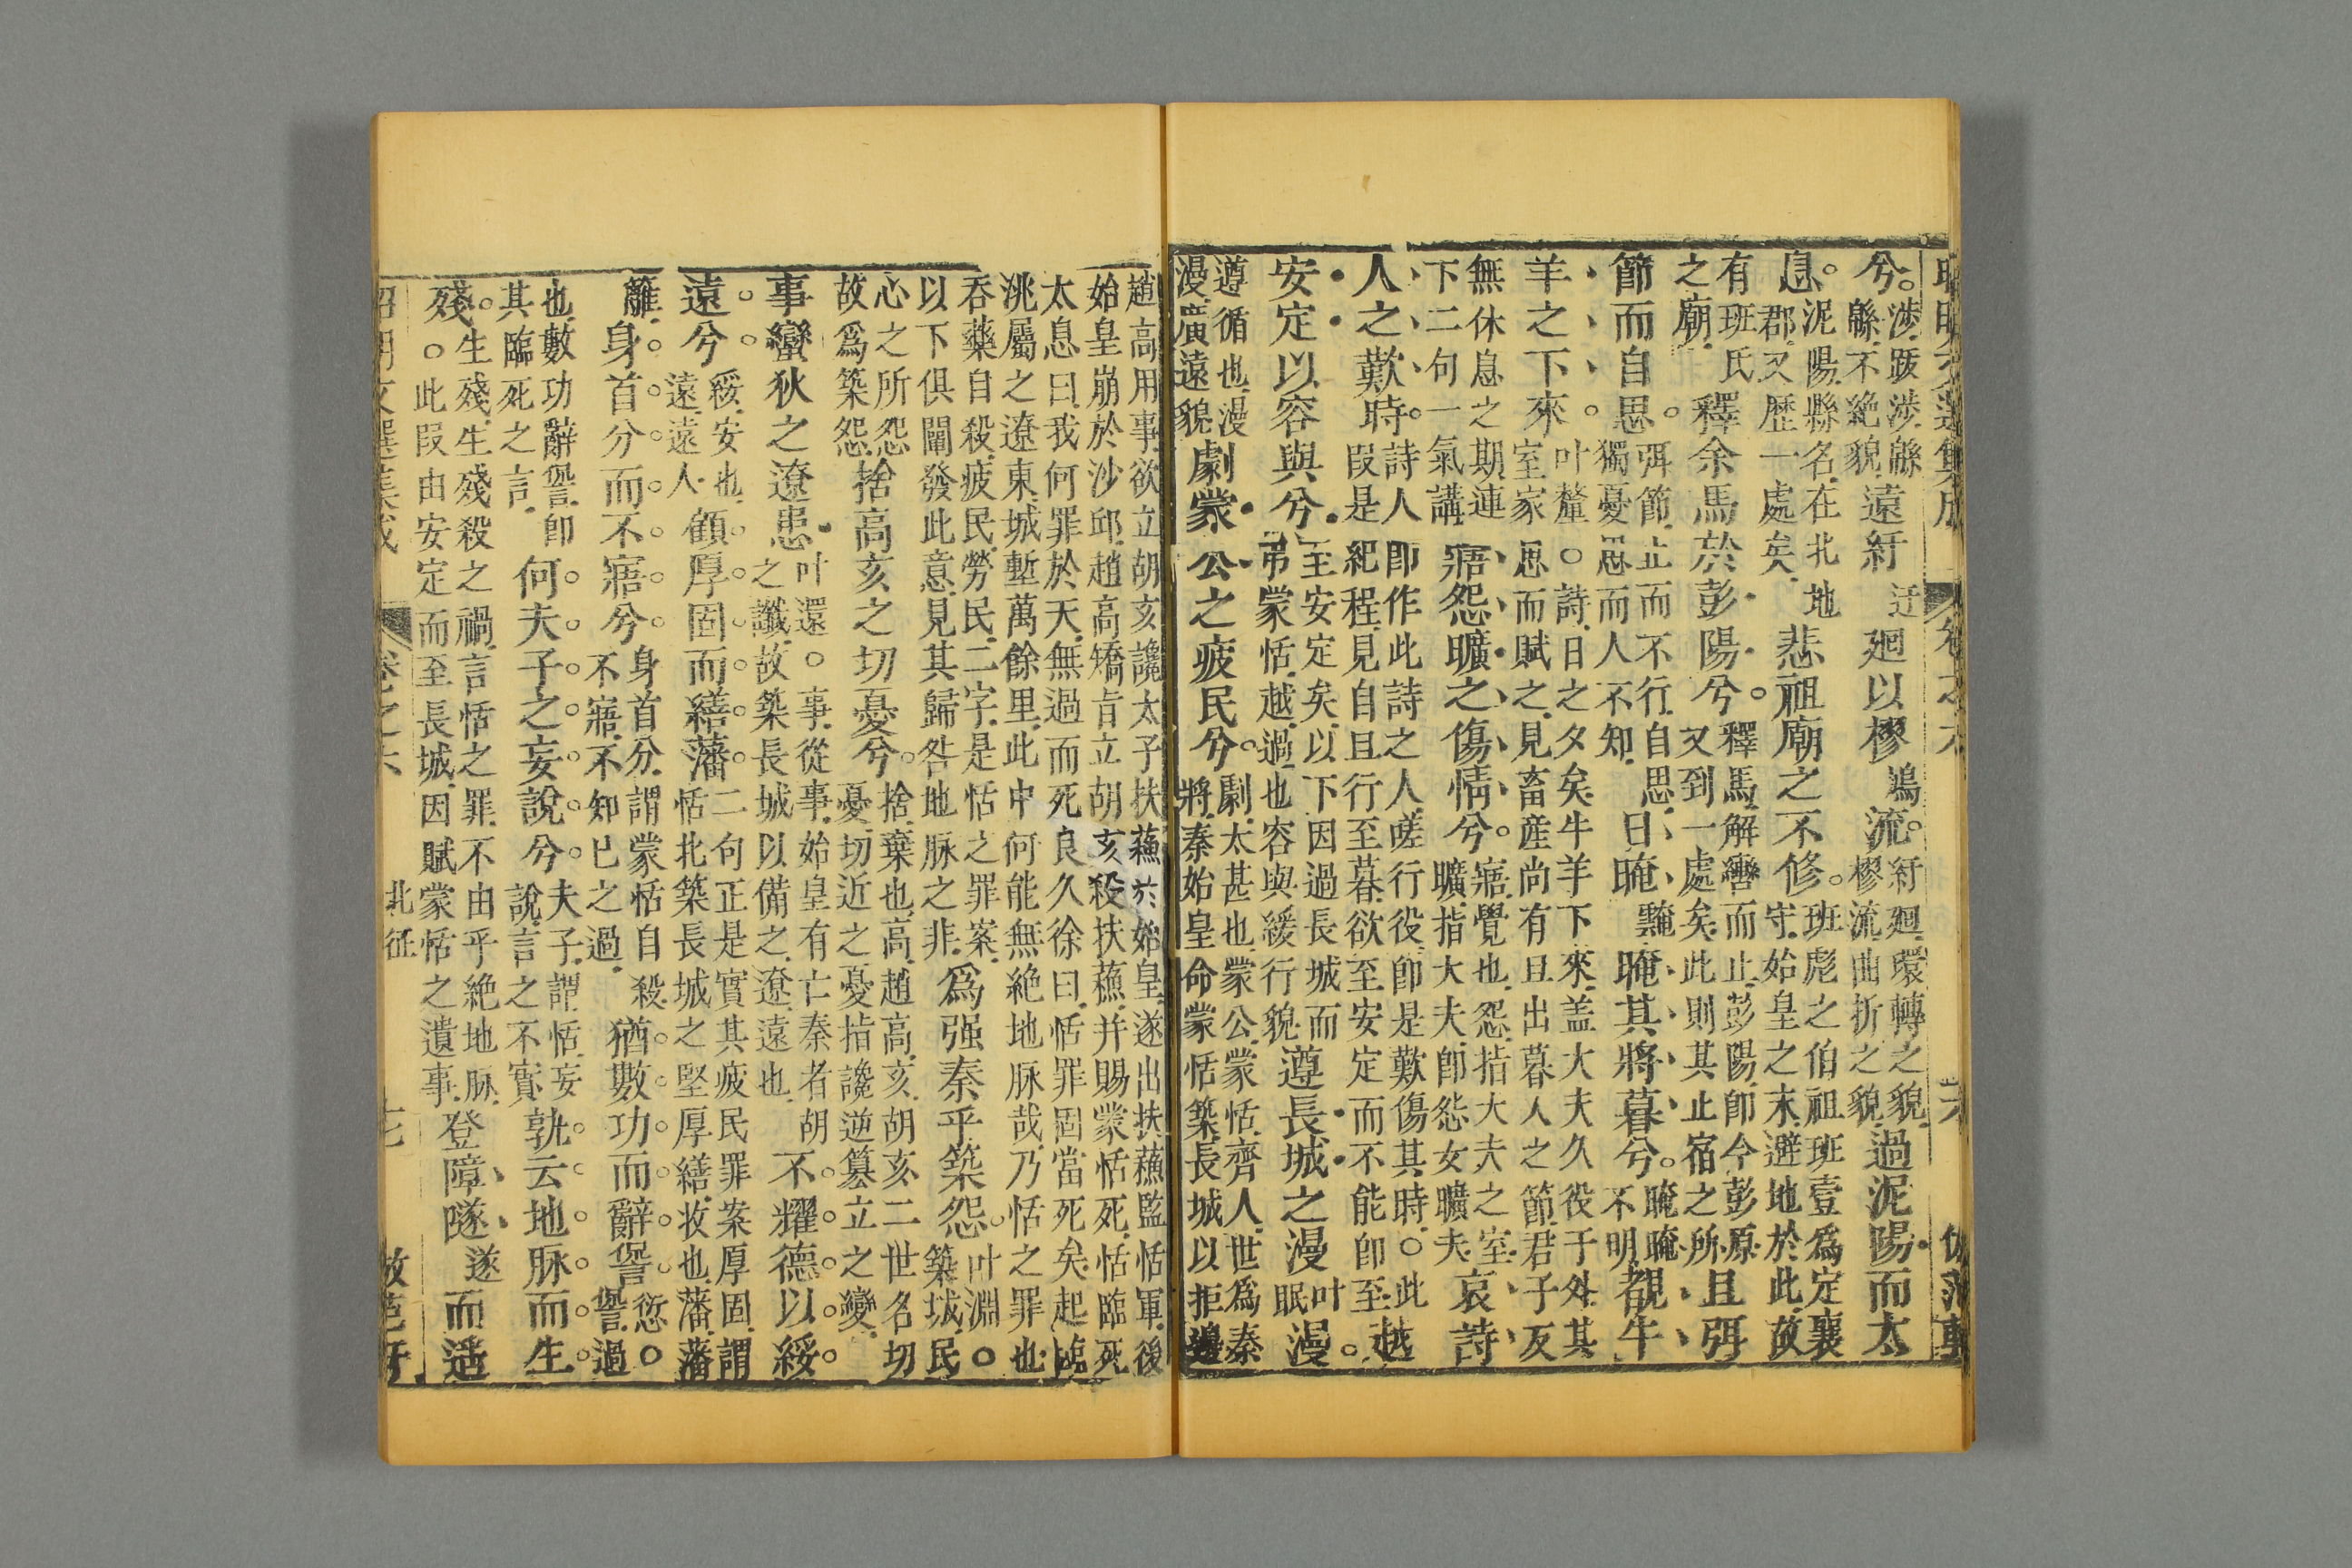 昭明文選集成　卷之六　六　倣范軒
兮。涉跋涉緜緜不絶貌遠紆迂廻以樛鳩流。紆廻環轉之貌樛流曲折之貌過泥陽而太
息。泥陽縣名在北地郡又歴一處矣悲祖廟之不修。班彪之伯祖班壹爲定襄守始皇之末避地於此故
有班氏之廟釋余馬於彭陽兮。釋馬解轡而止彭陽卽今彭原又到一處矣此則其止宿之所且弭
節而自思。弭節止而不行自思獨憂思而人不知日晻黤晻其將暮兮。晻晻不明覩牛
羊之下來。叶釐○詩日之夕矣牛羊下來盖大夫久役于外其室家思而賦之見畜産尚有旦出暮人之節君子反
無休息之期連下二句一氣講寤怨曠之傷情兮。寤覺也怨指大夫之室曠指大夫卽怨女曠夫哀詩
人之歎時。詩人卽作此詩之人嗟行役卽是歎傷其時○此叚是紀程見自且行至暮欲至安定而不能卽至越
安定以容與兮至安定矣以下因過長城而弔蒙恬越過也容與緩行貌遵長城之漫叶眠漫。
遵循也漫漫廣遠貌劇蒙公之疲民兮。劇太甚也蒙公蒙恬齊人世爲秦將秦始皇命蒙恬築長城以拒邊
趙高用事欲立胡亥讒太子扶蘓於始皇遂出扶蘓監恬軍後始皇崩於沙邱趙高矯旨立胡亥殺扶蘓并賜蒙恬死恬臨死
太息曰我何罪於天無過而死良久徐曰恬罪固當死矣起臨洮屬之遼東城塹萬餘里此中何能無絶地脉哉乃恬之罪也
吞藥自殺疲民勞民二字是恬之罪案以下俱闡發此意見其歸咎地脉之非爲强秦乎築怨。叶淵○築城民
心之所怨故爲築怨捨高亥之切憂兮。捨棄也高趙高亥胡亥二世名切憂切近之憂指讒逆簒立之變
事蠻狄之遼患叶還○事從事始皇有亡秦者胡之讖故築長城以備之遼遠也不耀德以綏
遠兮。綏安也遠遠人顧厚固而繕藩。二句正是實其疲民罪案厚固謂恬北築長城之堅厚繕收也藩藩
籬身首分而不寤兮身首分謂蒙恬自殺不寤不知已之過猶數功而辭諐愆○諐過
也數功辭諐卽其臨死之言何夫子之妄說兮夫子謂恬妄說言之不實孰云地脉而生
殘。生殘生殘殺之禍言恬之罪不由乎絶地脉○此叚由安定而至長城因賦蒙恬之遺事登障隧遂而遥
昭明文選集成　卷之六　北征　七　倣范軒